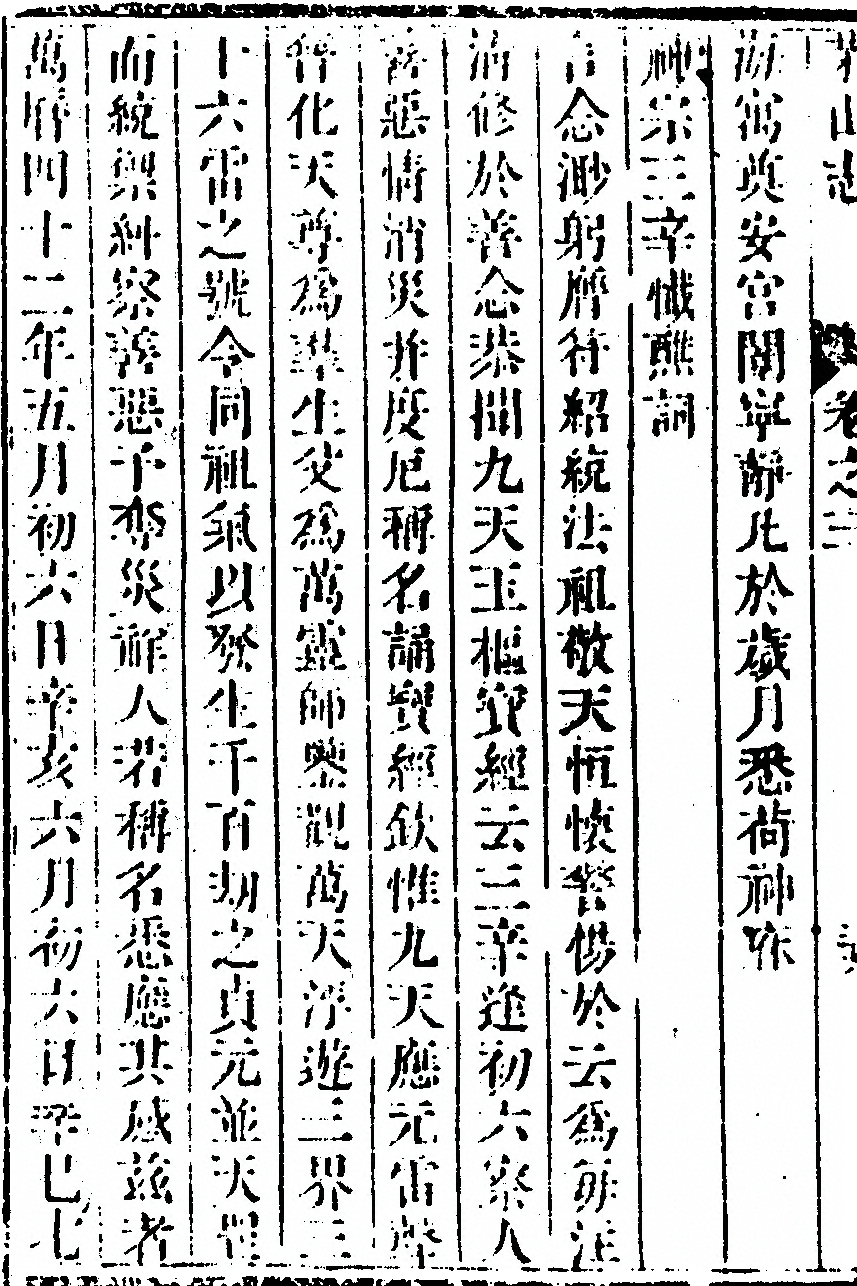 茅山志 卷之三
寓奠安宮闈寧靜凡於歲月悉荷神庥
神宗三辛懺醮詞
言念渺躬膺符紹統法祖敬天恒懷警惕於云爲毋注
清修於善念恭聞九天玉樞寶經云三辛逢初六察人
善惡情消災并度厄稱名誦寶經欽惟九天應元雷聲
普化天尊爲羣生父爲萬靈師鑒觀萬天浮遊三界三
十六雷之號令同祖氣以發生千百刼之貞元並天罡
而統禦糾察善惡千眚災祥人若稱名悉應其感茲者
萬曆四十二年五月初六日辛亥六月初六日辛巳七